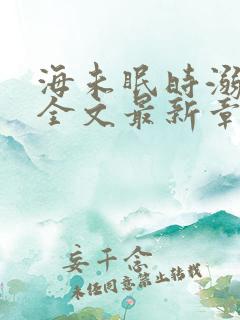 海未眠时溺
全文最新章
妄千念
未经同意禁止转载